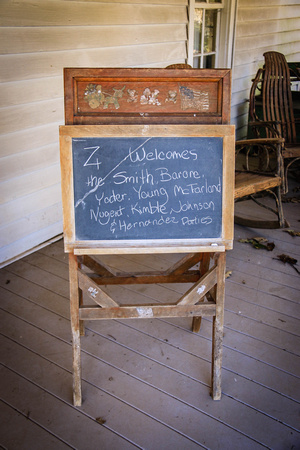 Z Welcomes
the Smith, Barone,
Yoder, Young McFarland
Nugent, Kimble, Johnson
& Hernandez Parties